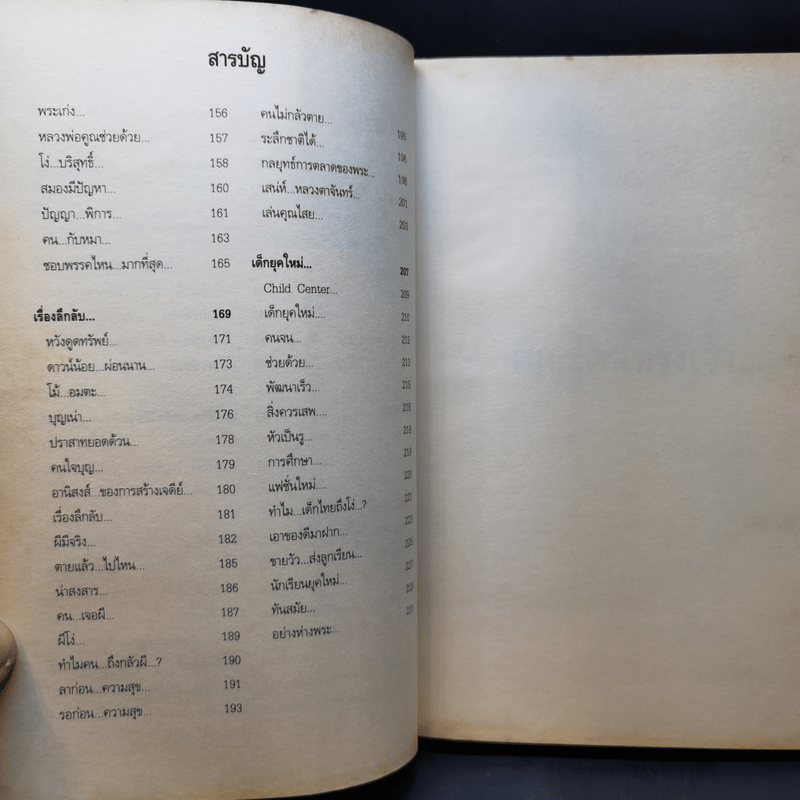 สารบัญ
พระเก่ง... 156
หลวงพ่อคูณช่วยด้วย... 157
โง่...บริสุทธิ์... 158
สมองมีปัญหา... 160
ปัญญา...พิการ... 161
คน...กับหมา... 163
ชอบพรรคไหน...มากที่สุด... 165
เรื่องลึกลับ... 169
หวังดูดทรัพย์... 171
ดาวน์น้อย...ผ่อนนาน... 173
โม้...อมตะ... 174
บุญเน่า... 176
ปราสาทยอดด้วน... 178
คนใจบุญ... 179
อานิสงส์...ของการสร้างเจดีย์... 180
เรื่องลึกลับ... 181
ผีมีจริง... 182
ตายแล้ว...ไปไหน... 185
น่าสงสาร... 186
คน...เจอผี... 187
ผีโง่... 189
ทำไมคน...ถึงกลัวผี...? 190
ลาก่อน...ความสุข... 191
รอก่อน...ความสุข... 193
คนไม่กลัวตาย... 195
ระลึกชาติได้... 196
กลยุทธ์การตลาดของพระ... 198
เสน่ห์...หลวงตาจันทร์... 201
เล่นคุณไสย... 203
เด็กยุคใหม่... 207
Child Center... 209
เด็กยุคใหม่.... 210
คนจน... 212
ช่วยด้วย... 213
พัฒนาเร็ว... 215
สิ่งควรเสพ.... 216
หัวเป็นรู... 218
การศึกษา... 219
แฟชั่นใหม่... 220
ทำไม...เด็กไทยถึงโง่...? 221
เอาของดีมาฝาก... 223
ขายวัว...ส่งลูกเรียน... 225
นักเรียนยุคใหม่... 227
ทันสมัย... 229
อย่างห่างพระ... 231